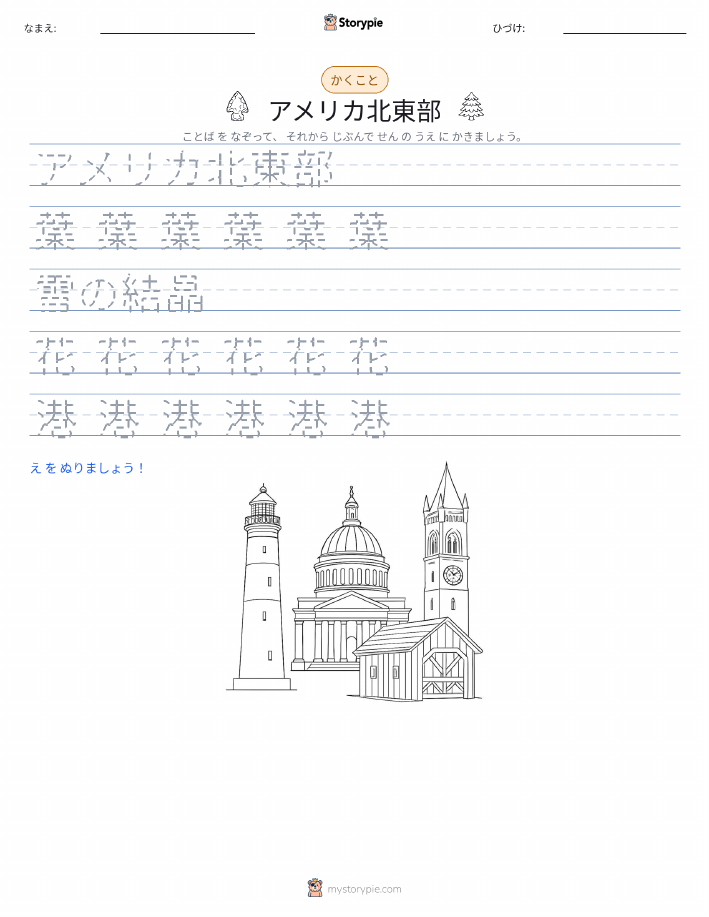 なまえ:
Storypie
ひづけ:
かくこと
アメリカ北東部
ことば を なぞって、 それから じぶんで せん の うえ に かきましょう。
アメリカ北東部
葉 葉 葉 葉 葉 葉
雪の結晶
花 花 花 花 花 花
港 港 港 港 港 港
え を ぬりましょう！
mystorypie.com